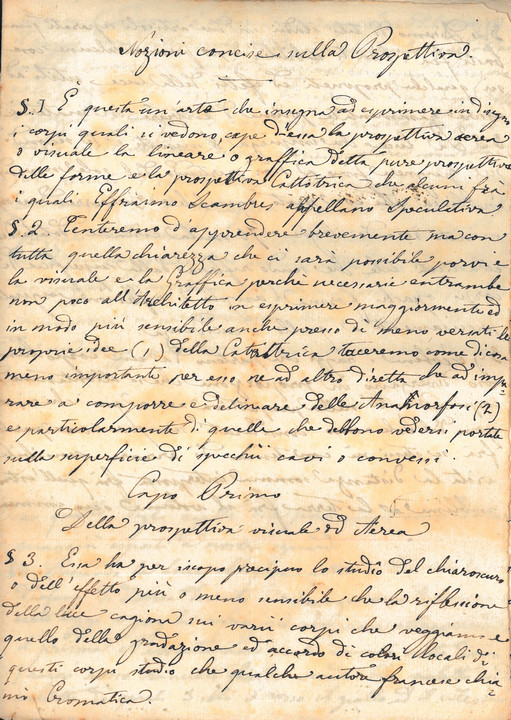 Nozioni concise sulla Prospettiva.
§. 1 È questa un'arte che insegna ad esprimere in disegno
i corpi quali si vedono, cape d'essa la prospettiva aerea
o visuale la lineare o graffica detta pure prospettiva
delle forme e la prospettiva Cattotrica che alcuni fra
i quali Effraimo Scambres appellano Speculativa
§. 2. Tenteremo d'apprendere brevemente ma con
tutta quella chiarezza che ci sarà possibile porvi e
la visuale e la Graffica perchè necessarie entrambe
non poco all'Architetto in esprimere maggiormente ed
in modo più sensibile anche presso di meno versati le
proprie idee (1) della Catottrica taceremo come di cosa
meno importante per esso ne ad altro diretta che ad impa=
rare a comporre e delineare delle Anamorfosi (2)
e particolarmente di quelle che debbono vedersi portate
sulla superficie di specchii cavi o convessi.
Capo Primo
Della prospettiva visuale od Aerea
§ 3. Essa ha per iscopo precipuo lo studio del chiaroscuro
o dell'effetto più o meno sensibile che la riflessione
della luce cagiona sui varii corpi che veggiamo e
quello della gradazione ed accordo di colori locali di
questi corpi studio che qualche autore francese chia=
mi Cromatica.